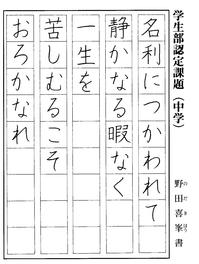 学生部認定課題（中学）
野田喜峯書
のだきほう
名利につかわれて
静かなる暇なく
一生を
苦しむるこそ
おろかなれ